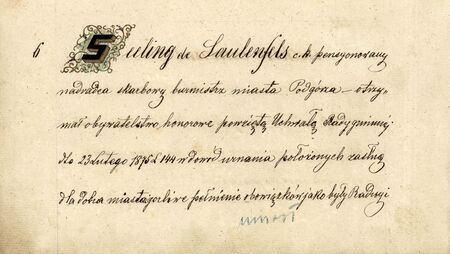 6 Seuling de Saulenfels c.k. pensyonowany
nadradca skarbowy burmistrz miasta Podgórza – otrzy-
mał obywatelstwo honorowe powziętą Uchwałą Rady gminnej
dto 23 Lutego 1875 L 144 w dowód uznania położonych zasług
dla dobra miasta gorliwe pełnienie obowiązków jako były Radczy i
umarł